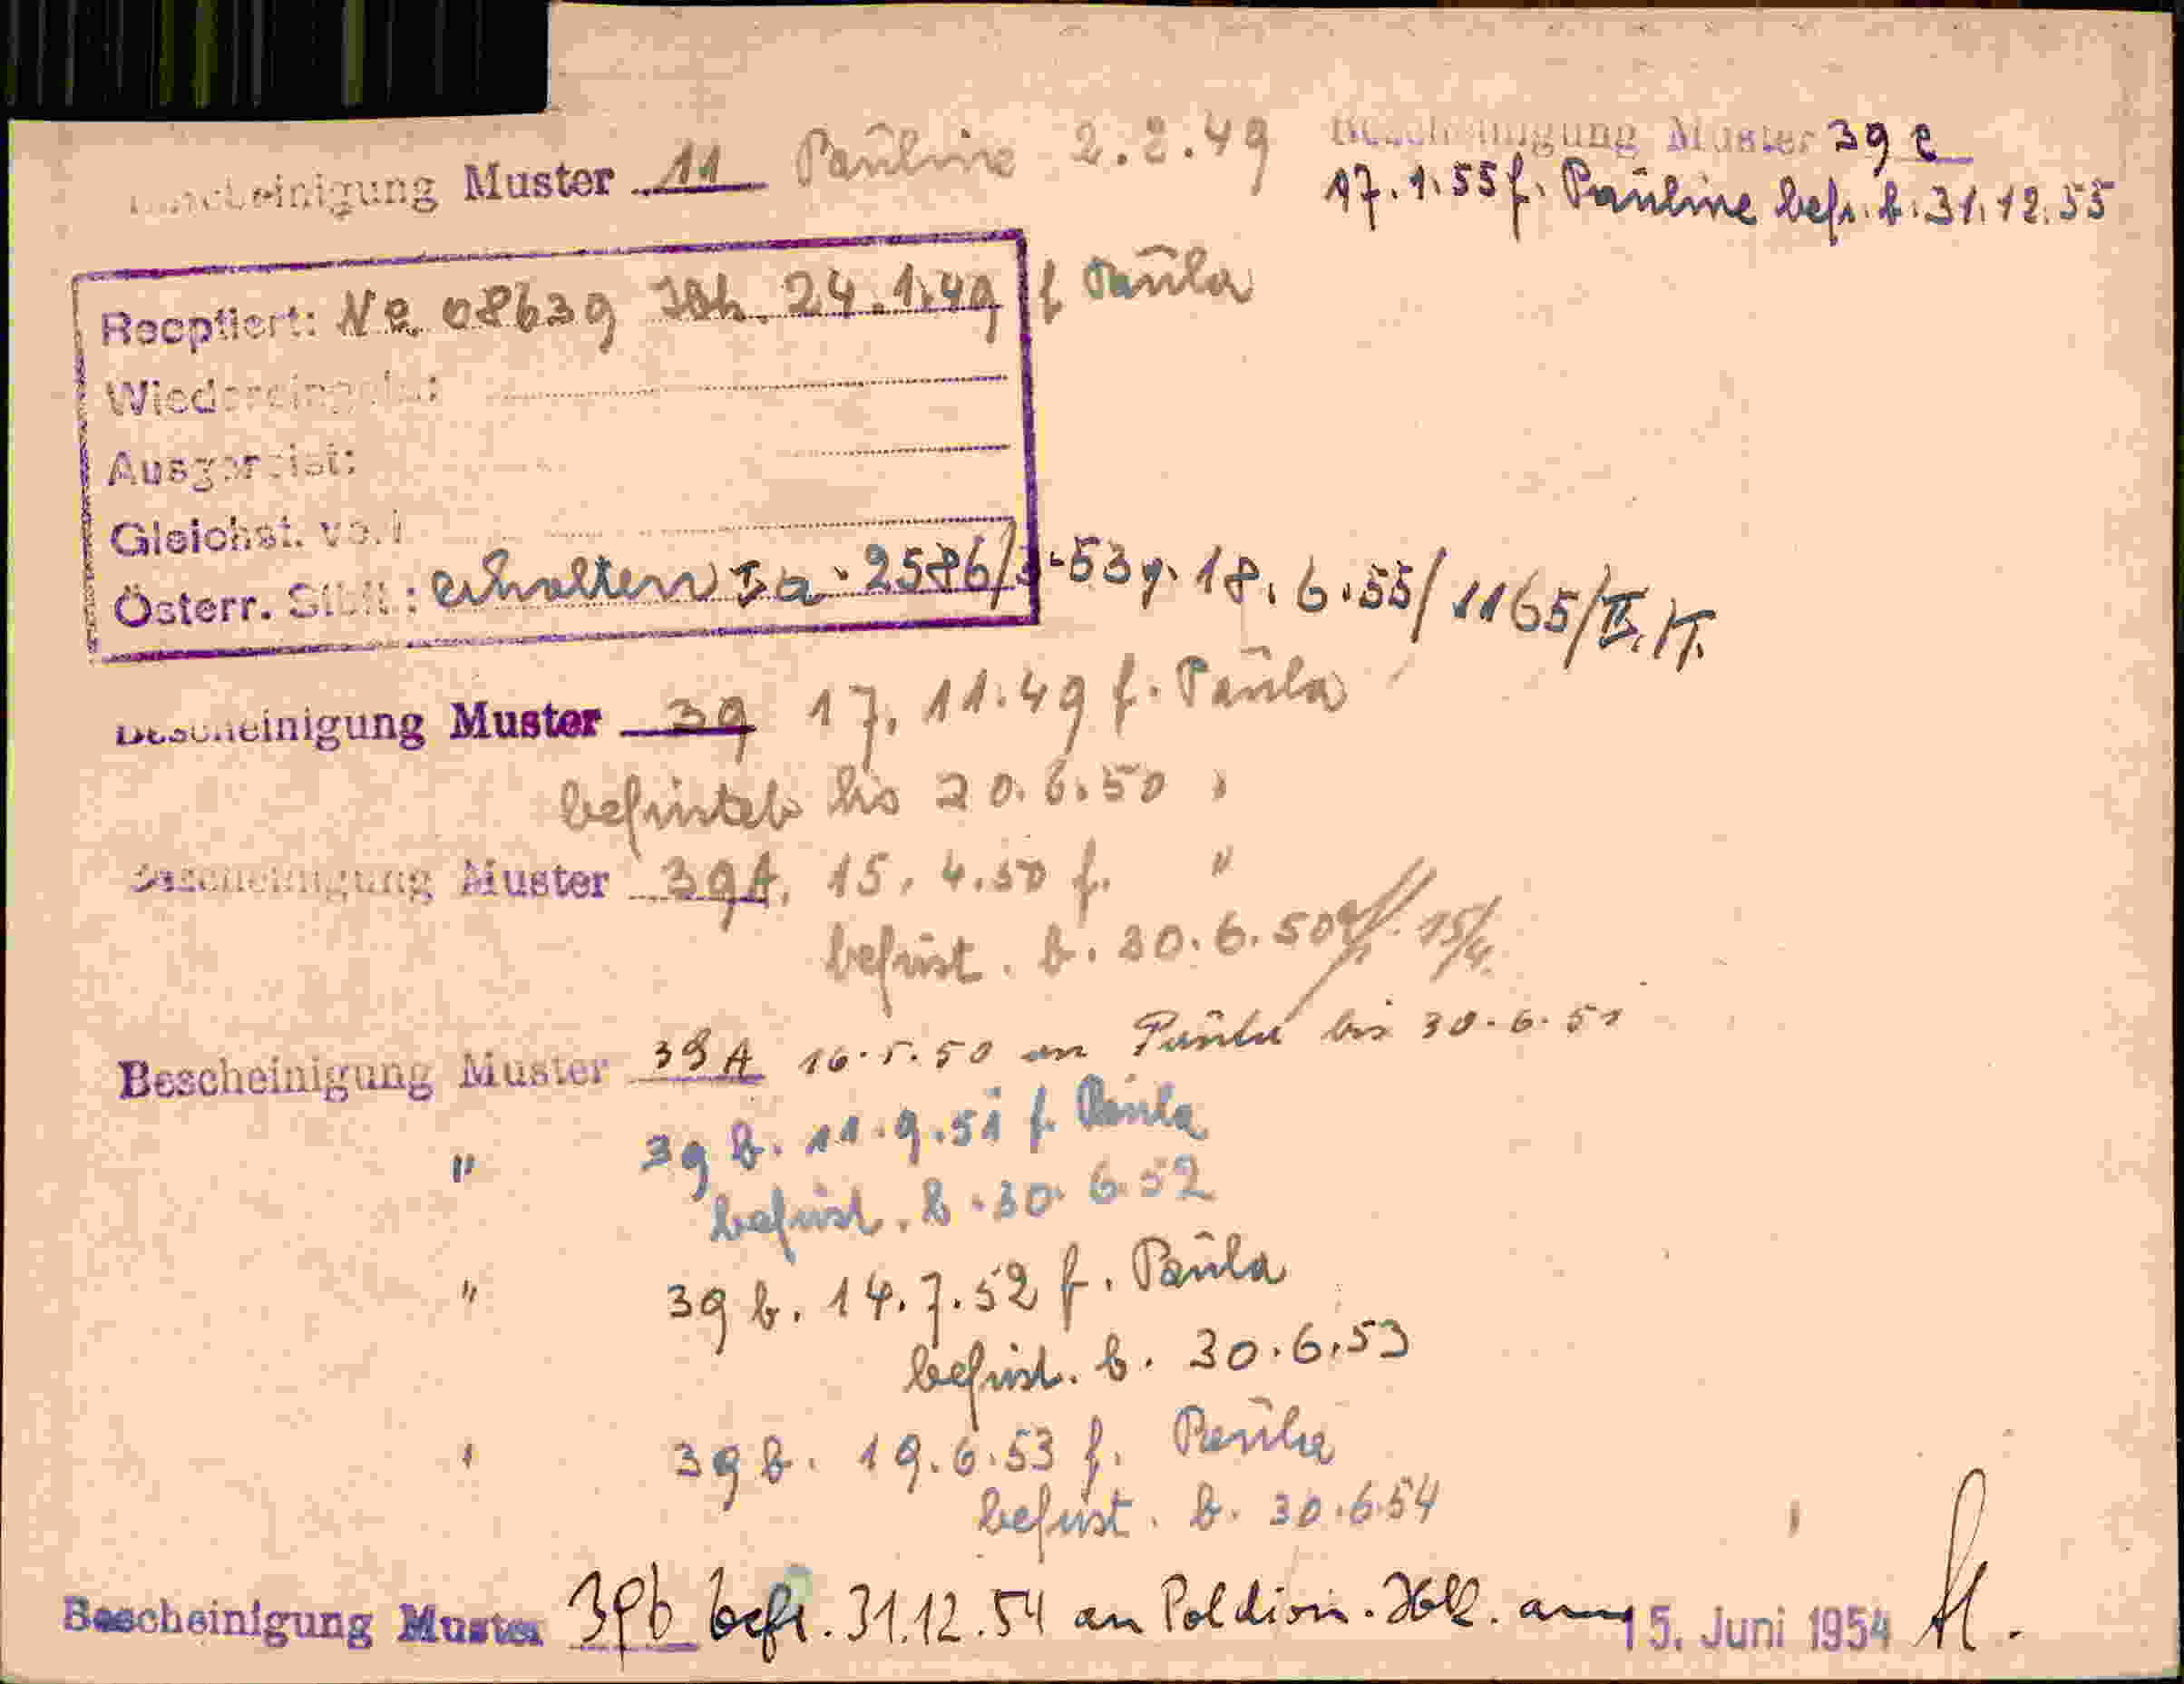 Bescheinigung Muster 11 Pauline 2.2.49
Bescheinigung Muster 39 e
17.1.55 f. Pauline befr. b. 31.12.55
Recptiert: 08639 24.1.49 f Paula
Ausgereist:
Gleichst.
Österr. : erhalten Ia. 2586/ -53 v. 18.6.55/1165/
Bescheinigung Muster 39 17.11.49 f. Paula
befristet bis 20.6.50
Bescheinigung Muster 39A, 15.4.50 f. "
befrist. b. 30.6.50 15/4.
Bescheinigung Muster 39 A 16.5.50 an Paula bis 30.6.51
" 39 b. 11.9.51 f. Paula
befrist. b. 30.6.52
" 39 b. 14.7.52 f. Paula
befrist. b. 30.6.53
" 39 b. 19.6.53 f. Paula
befrist. b. 30.6.54
Bescheinigung Muster 39b befr. 31.12.54 an Poldion. am 15. Juni 1954